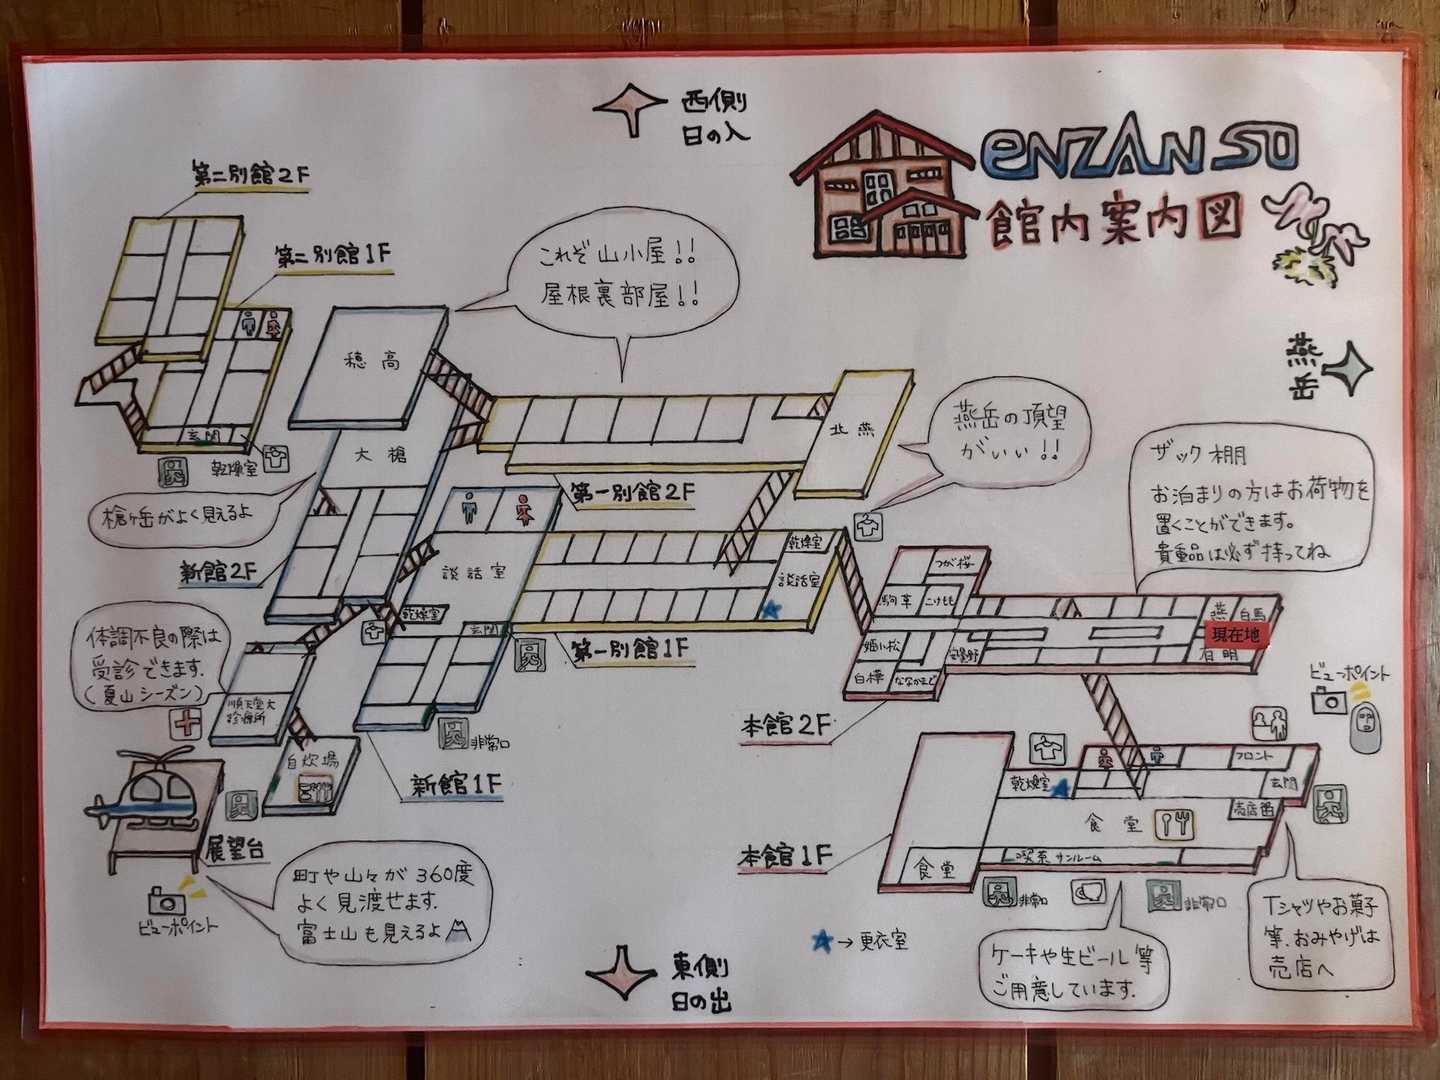 西側
日の入
ENZANSO
館内案内図
第二別館2F
第二別館1F
これぞ山小屋!!
屋根裏部屋!!
燕岳
穂高
大槍
北燕
燕岳の頂望
がいい!!
ザック棚
お泊まりの方はお荷物を
置くことができます。
貴重品は必ず持ってね
玄関
乾燥室
槍ヶ岳がよく見えるよ
第一別館2F
新館2F
談話室
乾燥室
談話室
つが桜
駒草
こけもも
燕
白馬
現在地
有明
乾燥室
玄関
第一別館1F
姫小松
安曇野
白樺
ななかまど
体調不良の際は
受診できます.
(夏山シーズン)
順天堂大
診療所
ビューポイント
本館2F
非常口
自炊場
新館1F
フロント
乾燥室
玄関
売店
食堂
展望台
本館1F
食堂
喫茶サンルーム
非常口
非常口
町や山々が360度
よく見渡せます.
富士山も見えるよ
ビューポイント
Tシャツやお菓子
等、おみやげは
売店へ
→更衣室
ケーキや生ビール等
ご用意しています.
東側
日の出